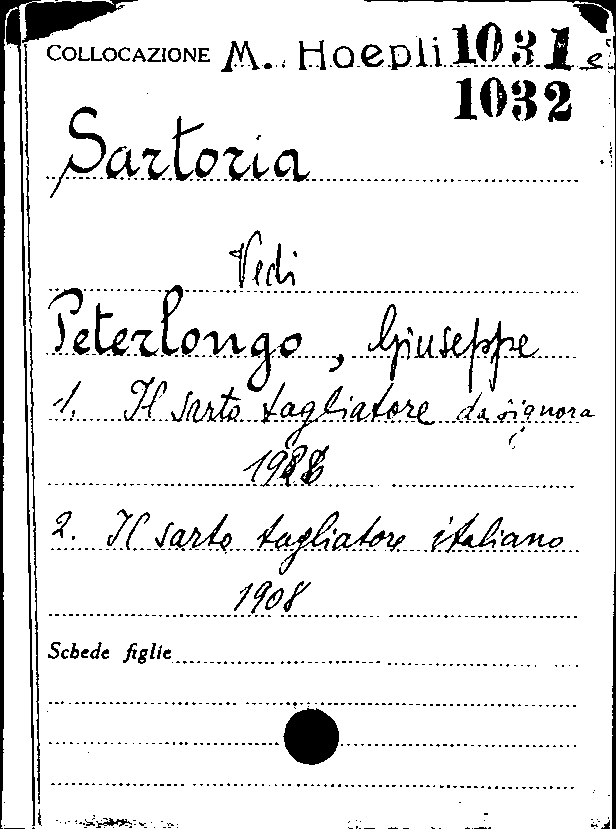 COLLOCAZIONE M. Hoepli 1031 e
1032
Sartoria
Vedi
Peterlongo, Giuseppe
1. Il sarto tagliatore da signora
2. Il sarto tagliatore italiano
1908
Schede figlie